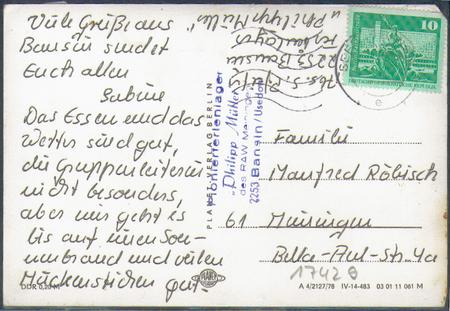 Viele Grüße aus
Bansin sendet
Euch allen
Sabine
Das Essen und das
Wetter sind gut,
die Gruppenleiterin
nicht besonders,
aber mir geht es
bis auf einen Son-
nenbrand und vielen
Mückenstichen gut.
DDR 0,20 M
PLANET-VERLAG BERLIN
Pionierferienlager
"Philipp Müller"
des RAW Meiningen
2253 Bansin/Usedom
Abs. S.
2253 Bansin
"Philipp Müller"
10
DEUTSCHE DEMOKRATISCHE REPUBLIK
Familie
Manfred Röbisch
61 Meiningen
Bella-Aul-Str. 4a
17429
PLANET
A 4/2127/78 IV-14-483 03 01 11 061 M